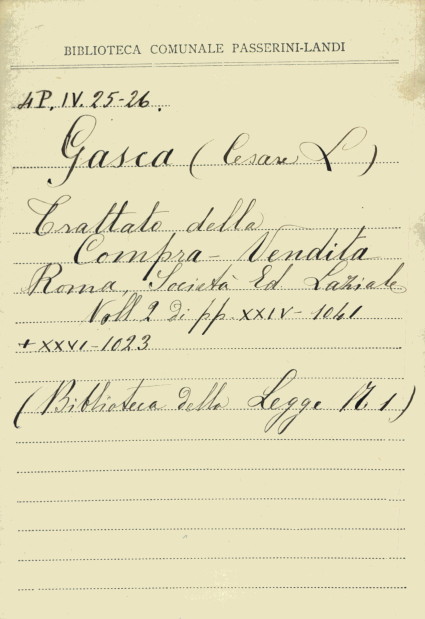 BIBLIOTECA COMUNALE PASSERINI-LANDI
4P. IV. 25-26.
Gasca (Cesare L)
Trattato della
Compra-Vendita
Roma, Società Ed Laziale
Voll 2 di pp. XXIV-1041
+ XXVI-1023
(Biblioteca della Legge N. 1)